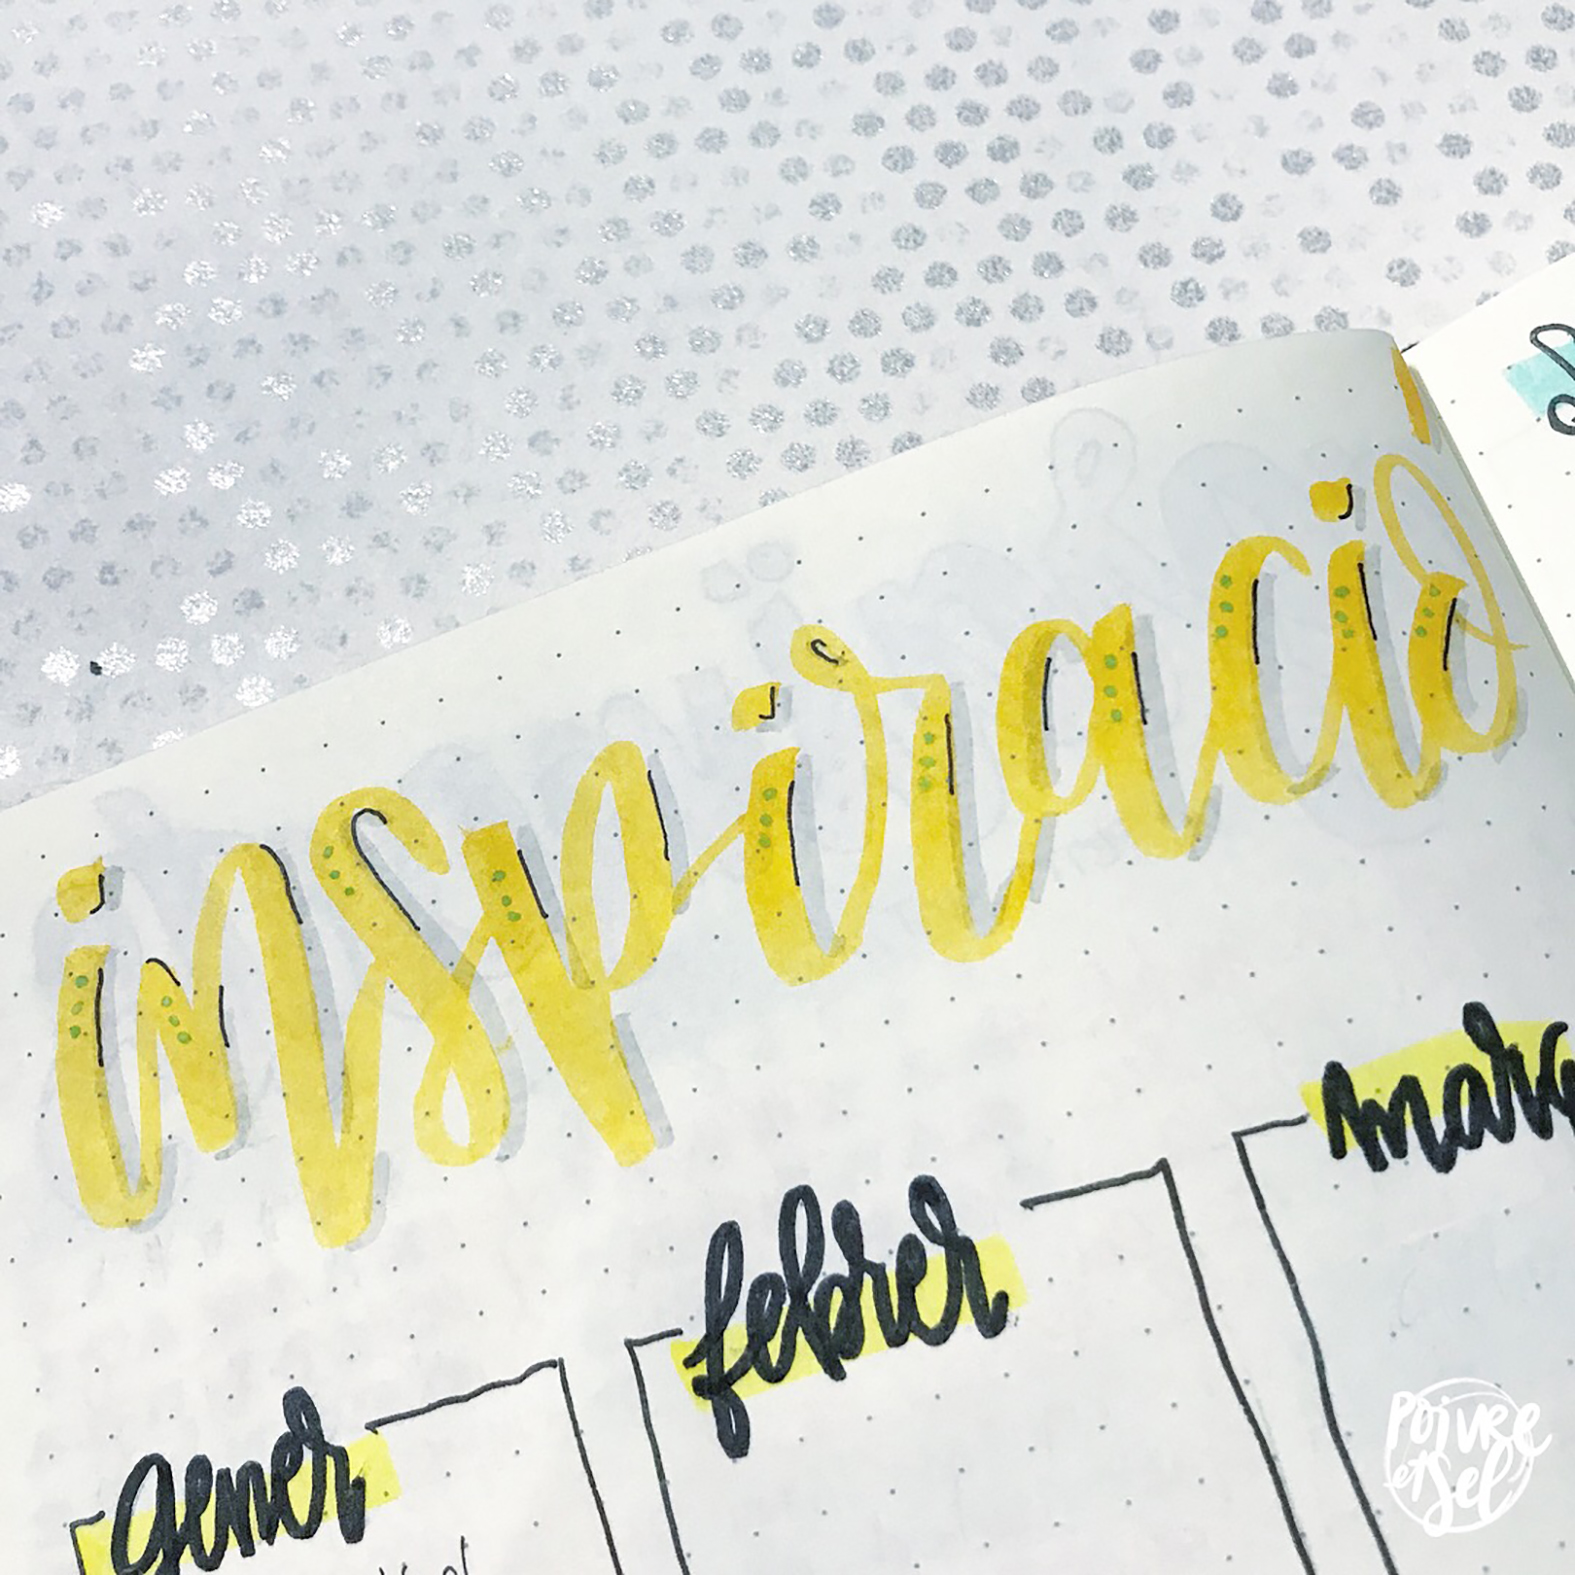 inspiració
febrer
març
gener
Poivre
et Sel